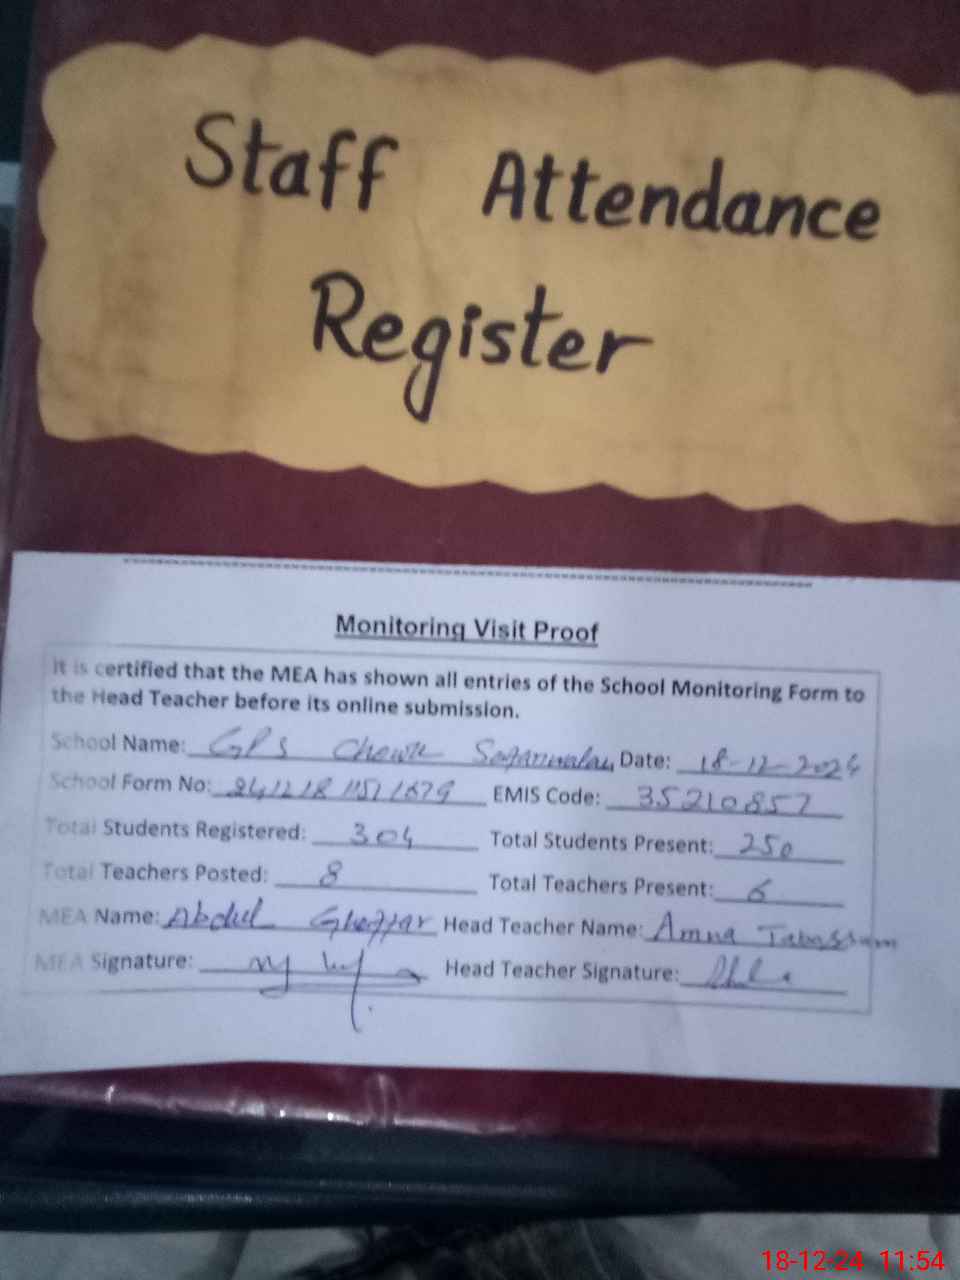 Staff Attendance
Register
Monitoring Visit Proof
It is certified that the MEA has shown all entries of the School Monitoring Form to
the Head Teacher before its online submission.
School Name: GPS Date: 18-12-2024
School Form No: EMIS Code: 35210857
Total Students Registered: 304 Total Students Present: 250
Total Teachers Posted: 8 Total Teachers Present: 6
MEA Name: Abdul Ghaffar Head Teacher Name: Amna Tabassum
MEA Signature: Head Teacher Signature:
18-12-24 11:54